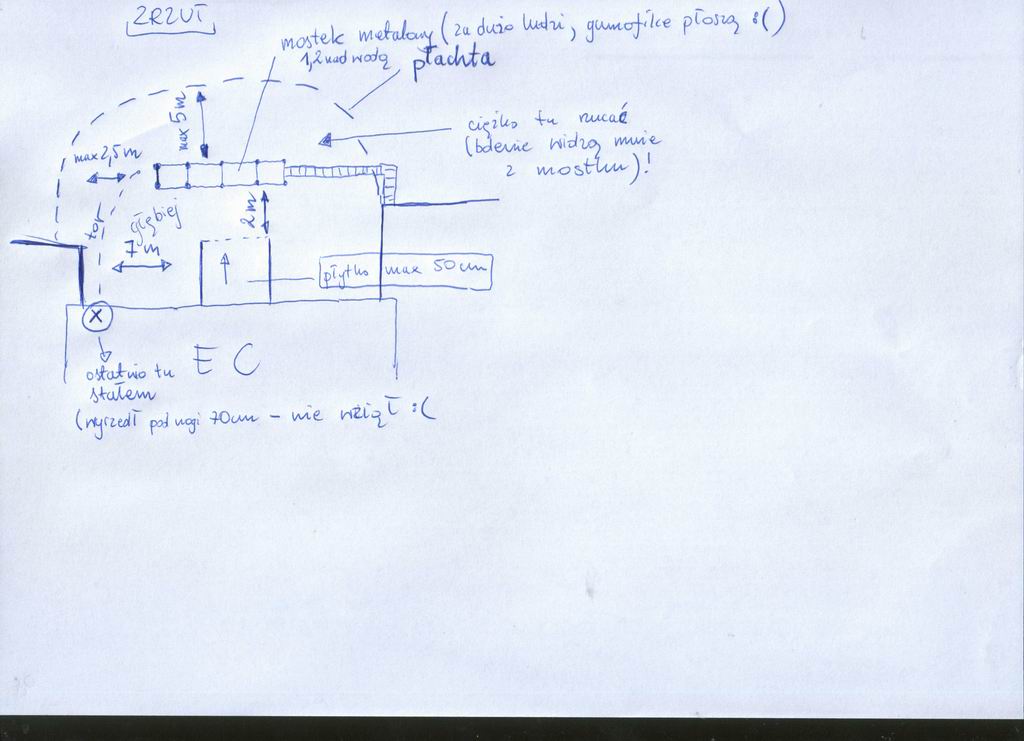 ZRZUT
mostek metalowy (za dużo ludzi, gumofilce płoszą :( )
1,2 nad wodą
płachta
max 5 m
ciężko tu rzucać
(bolenie widzą mnie
z mostku)!
max 2,5 m
głębiej
tor
7 m
2 m
płytko max 50 cm
X
EC
ostatnio tu
stałem
(wyszedł pod nogi 70cm - nie wziął :(